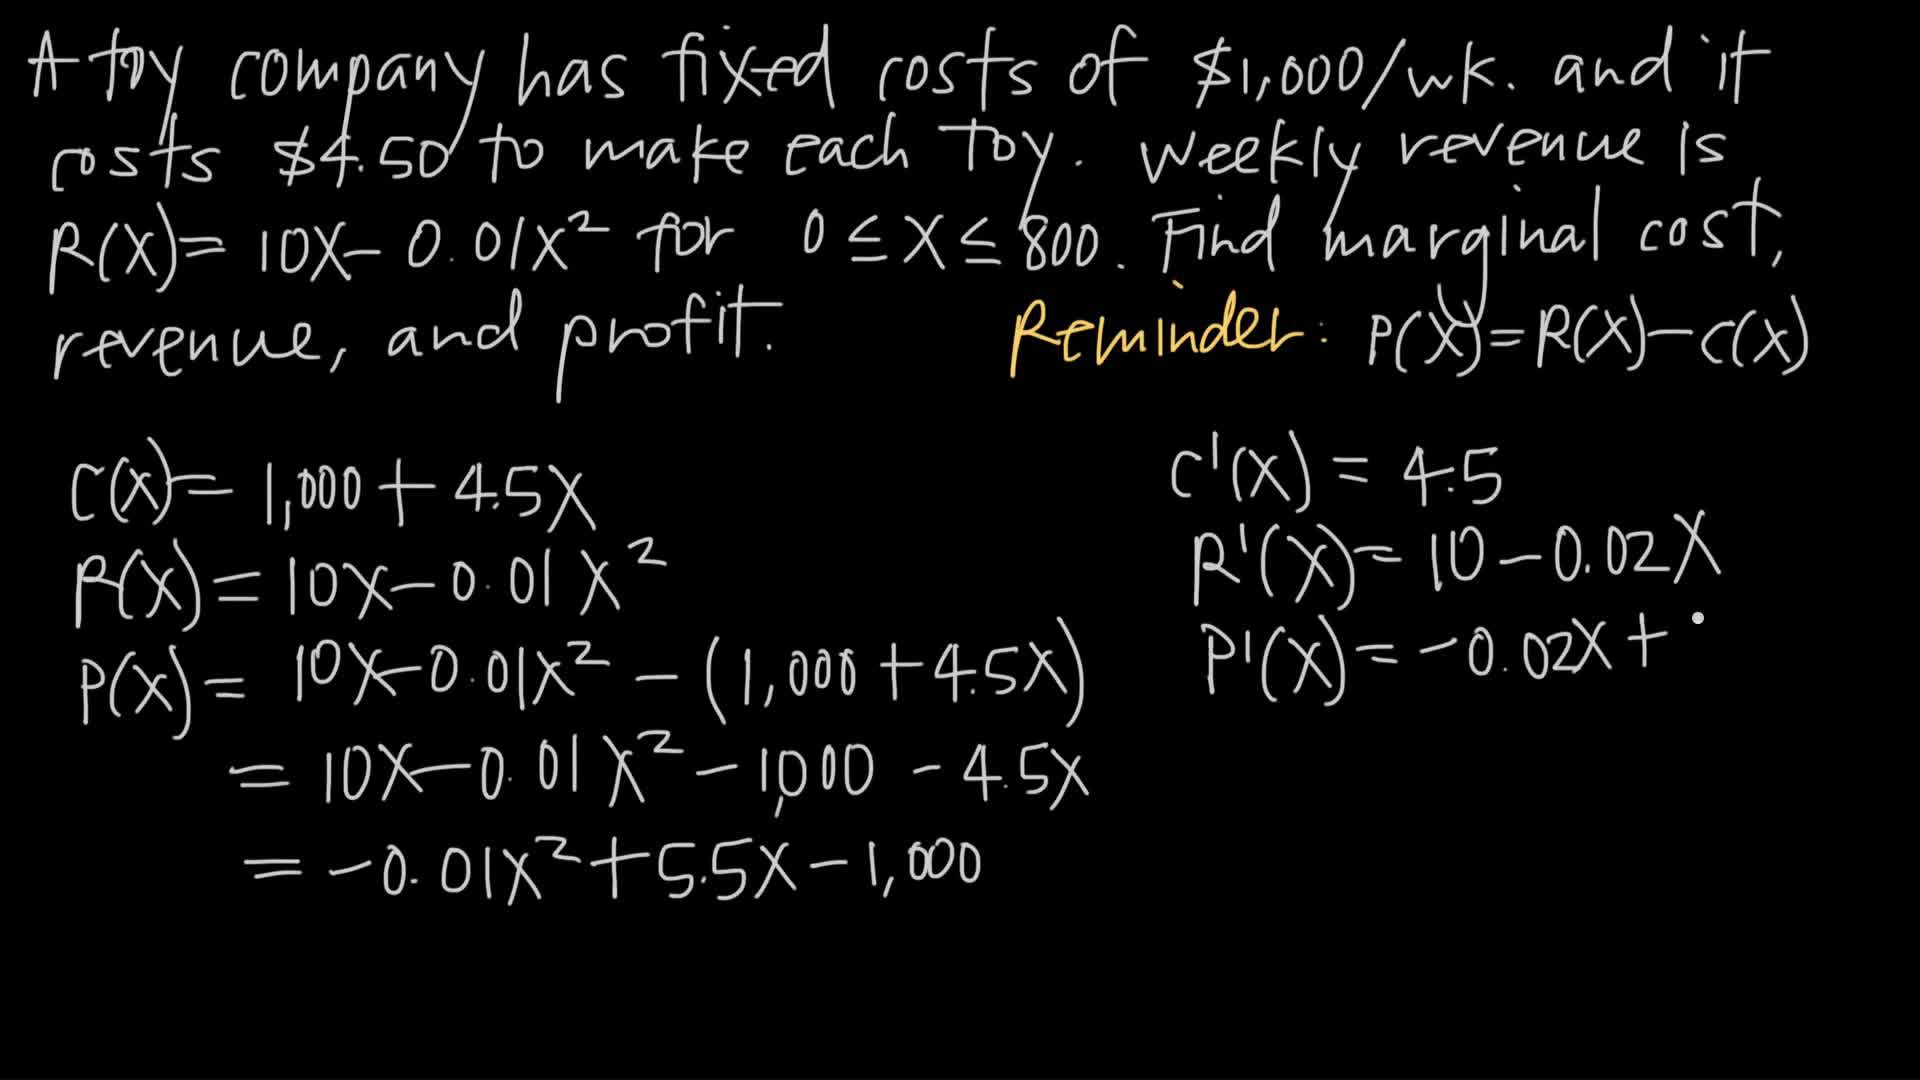 A toy company has fixed costs of $1,000/wk. and it
costs $4.50 to make each toy. Weekly revenue is
R(x)= 10x-0.01x² for 0 ≤ x ≤ 800. Find marginal cost,
revenue, and profit. Reminder: P(x)=R(x)-C(x)
C(x)= 1,000+4.5x
R(x)=10x-0.01x²
P(x)= 10x-0.01x² - (1,000+4.5x)
= 10x-0.01x² - 1,000 - 4.5x
= -0.01x²+5.5x-1,000
C'(x) = 4.5
R'(x)= 10-0.02x
P'(x)= -0.02x+